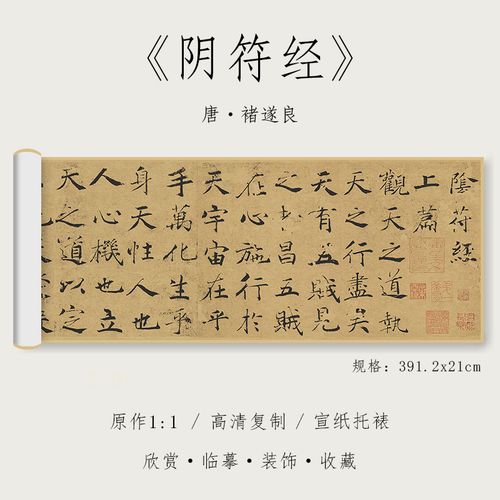 《阴符经》
唐·褚遂良
陰符經
上篇
觀天之道執
天之行盡矣
天有五賊見
之昌五賊
在心施行於
天宇宙在乎
手萬化生乎
身天性人也
人心機也立
天之道以定
规格：391.2x21cm
原作1:1 / 高清复制 / 宣纸托裱
欣赏·临摹·装饰·收藏